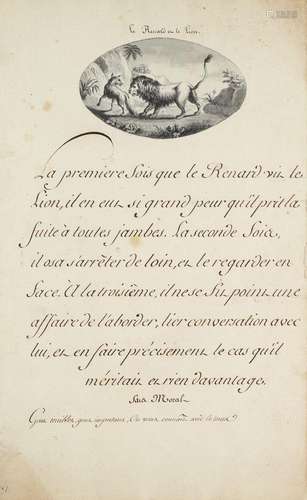 Le Renard et le Lion.
La premiere fois que le Renard vit le
Lion, il en eut si grand peur qu'il prit la
fuite à toutes jambes. La seconde fois,
il osa s'arrêter de loin, et le regarder en
face. A la troisième, il ne se fit point une
affaire de l'aborder, lier conversation avec
lui, et en faire précisement le cas qu'il
méritait et rien davantage.
Moral
Gens gens